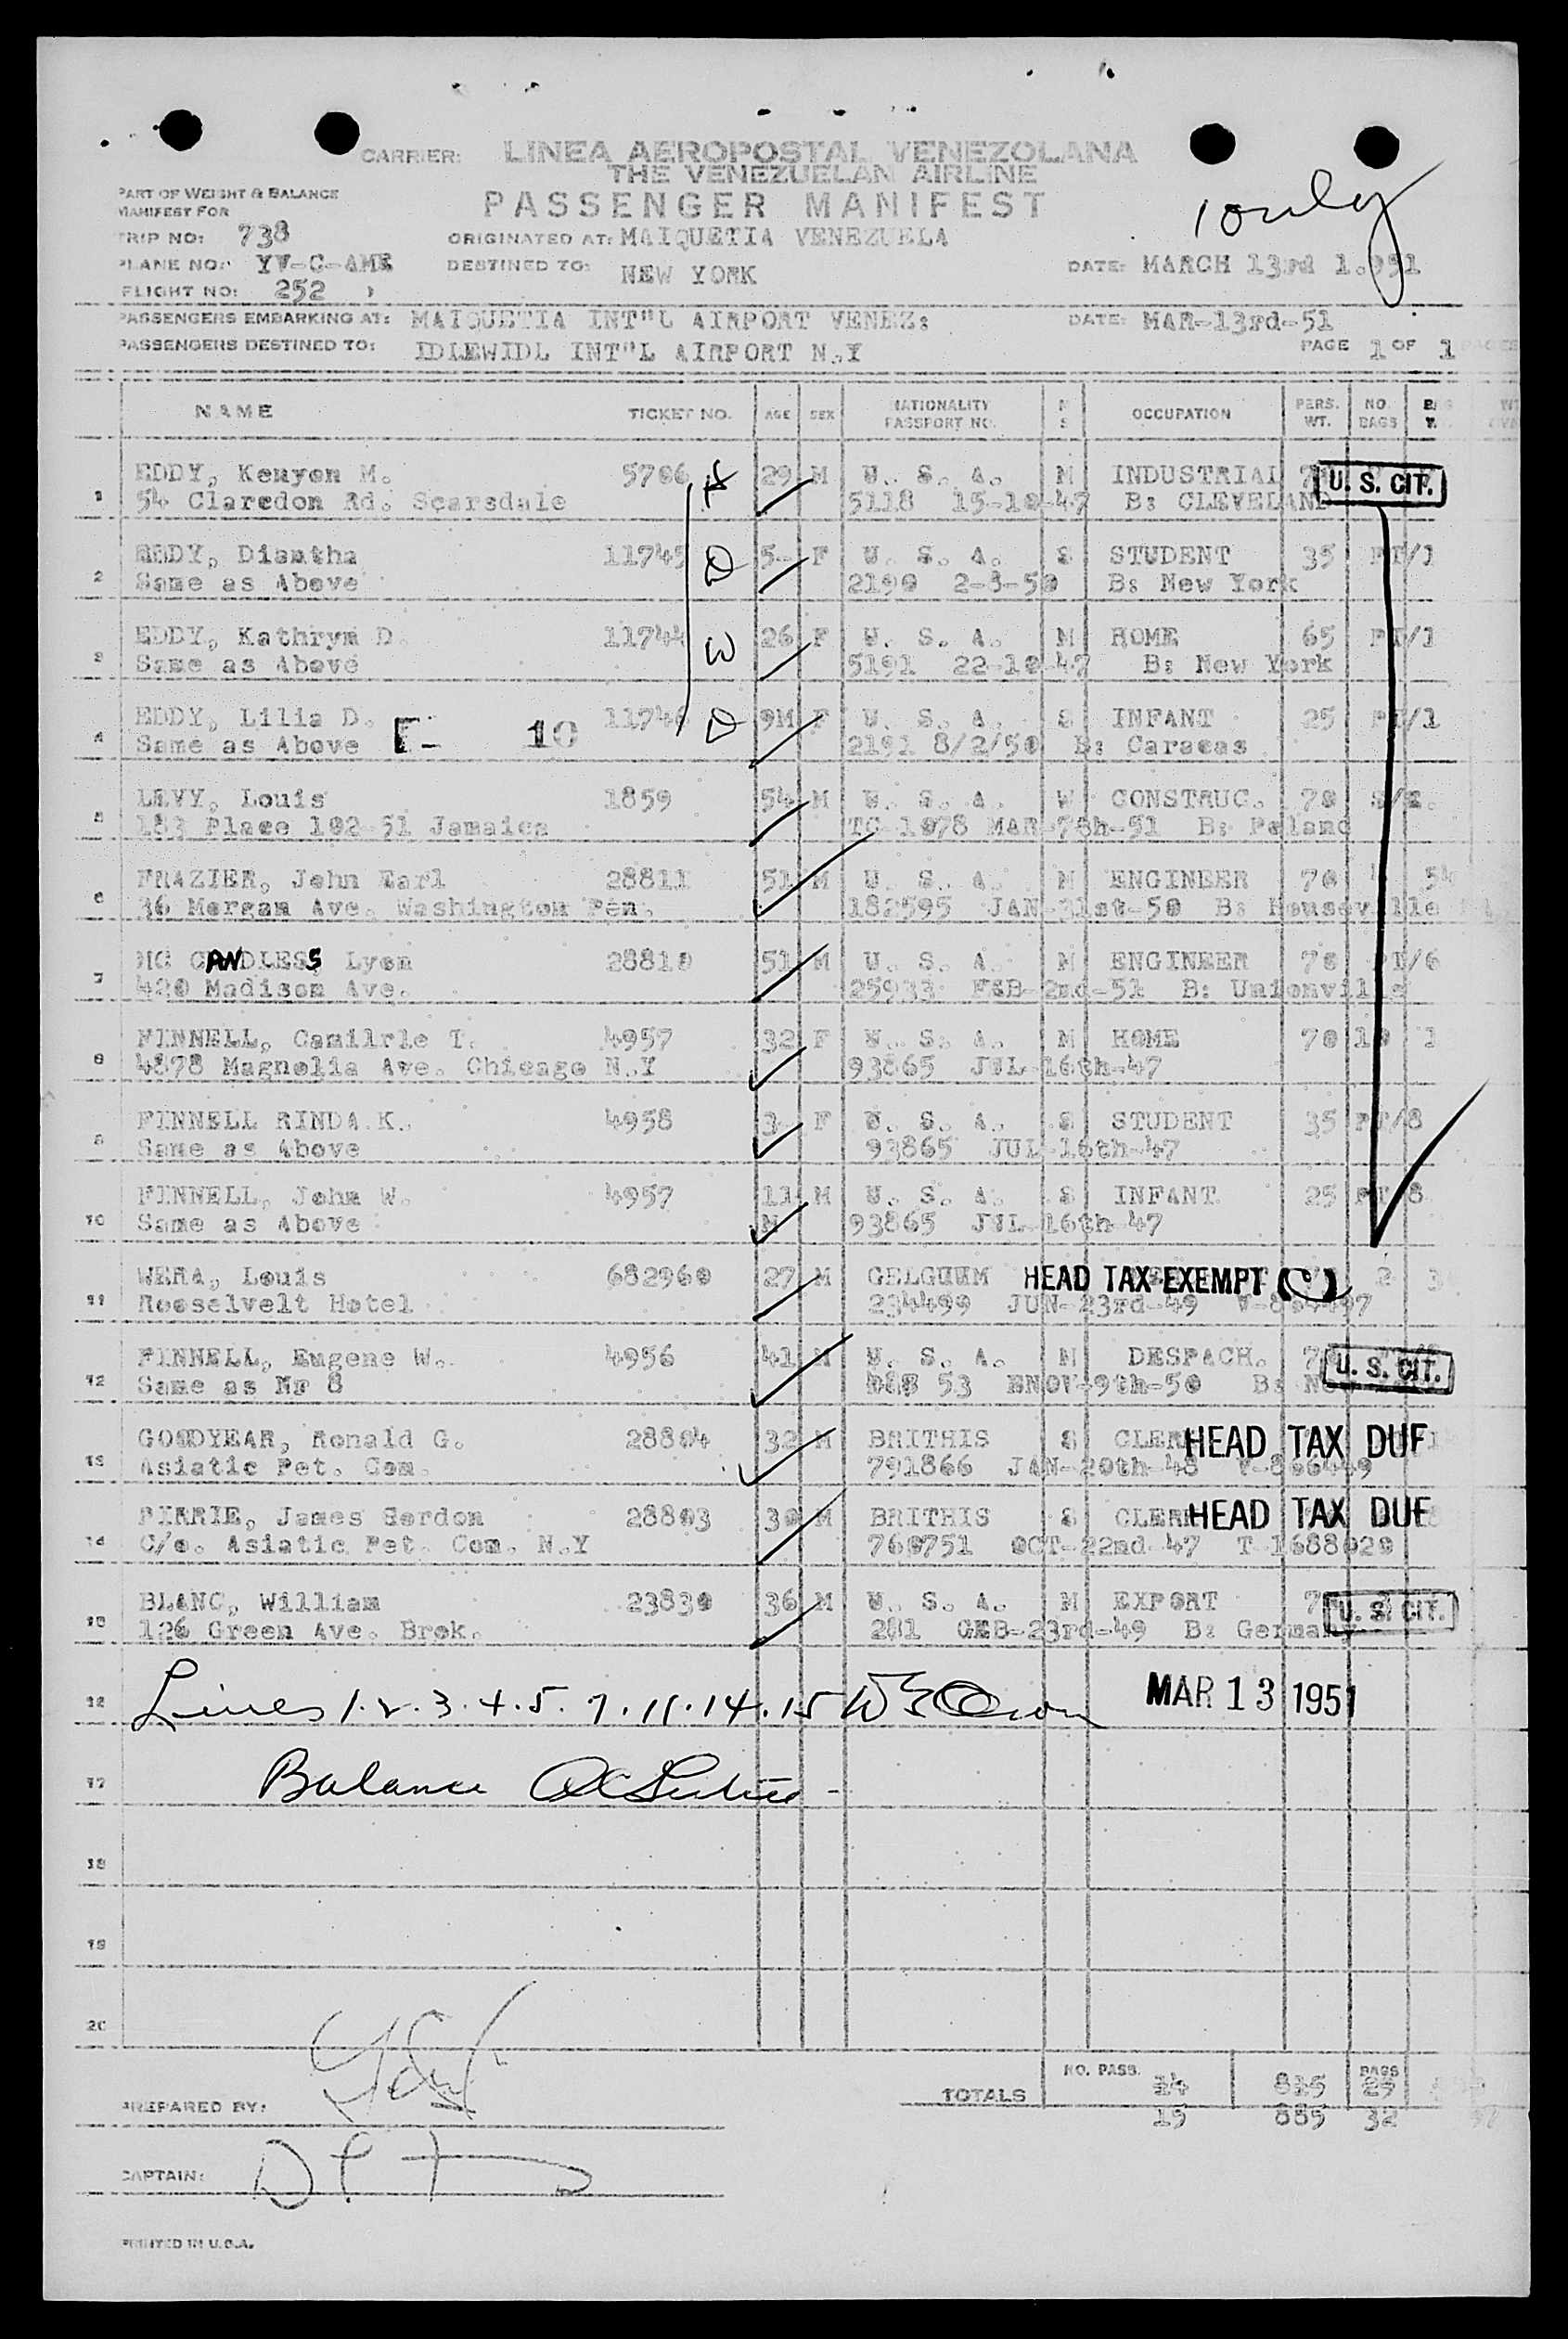 CARRIER: LINEA AEROPOSTAL VENEZOLANA
THE VENEZUELAN AIRLINE
PASSENGER MANIFEST
1 only
PART OF WEIGHT & BALANCE
MANIFEST FOR
TRIP NO: 738 ORIGINATED AT: MAIQUETIA VENEZUELA
PLANE NO: YV-C-AME DESTINED TO: NEW YORK DATE: MARCH 13rd 1.951
FLIGHT NO: 252
PASSENGERS EMBARKING AT: MAIQUETIA INT"L AIRPORT VENEZ: DATE: MAR-13rd-51
PASSENGERS DESTINED TO: IDLEWIDL INT"L AIRPORT N.Y PAGE 1 OF 1 PAGES
NAME TICKET NO. AGE SEX NATIONALITY PASSPORT NO. M S OCCUPATION PERS. WT. NO. BAGS
1 EDDY, Kenyon M. 5706 H 29 M U. S. A. M INDUSTRIAL U. S. CIT.
54 Claredon Rd. Scarsdale 5118 15-10-47 B: CLEVELAND
2 EDDY, Diantha 11745 D 5- F U. S. A. S STUDENT 35 PT/1
Same as Above 2190 2-8-50 B: New York
3 EDDY, Kathryn D. 11744 W 26 F U. S. A. M HOME 65 PT/1
Same as Above 5191 22-10-47 B: New York
4 EDDY, Lilia D. 11746 D 9M F U. S. A. S INFANT 25 PT/1
Same as Above 10 2191 8/2/50 B: Caracas
5 LEVY, Louis 1859 54 M U. S. A. W CONSTRUC. 70
183 Place 102-51 Jamaica TC-1078 MAR-7th-51 B: Poland
6 FRAZIER, John Earl 28811 51 M U. S. A. M ENGINEER 70
36 Morgan Ave. Washington Pen. 182595 JAN-31st-50 B: Houseville
7 MC CANDLESS Lyon 28810 51 M U. S. A. M ENGINEER 70 PT/6
420 Madison Ave. 25933 FEB-2nd-51 B: Unionville
8 FINNELL, Camilrle T. 4957 32 F U. S. A. M HOME 70 10
4878 Magnolia Ave. Chicago N.Y 93865 JUL-16th-47
9 FINNELL RINDA K. 4958 3 F U. S. A. S STUDENT 35 PT/8
Same as Above 93865 JUL-16th-47
10 FINNELL, John W. 4957 11 M U. S. A. S INFANT 25 PT/8
Same as Above M 93865 JUL-16th-47
11 WERA, Louis 682960 27 M GELGUUM HEAD TAX EXEMPT 2 3
Rooselvelt Hotel 234499 JUN-23rd-49
12 FINNELL, Eugene W. 4956 41 M U. S. A. M DESPACH. U. S. CIT.
Same as Nr 8 53 ENOV-9th-50
13 GOODYEAR, Ronald G. 28804 32 M BRITHIS S CLERK HEAD TAX DUE
Asiatic Pet. Com. 791866 JAN-20th-48 V-806449
14 PIRRIE, James Gordon 28803 30 M BRITHIS S CLERK HEAD TAX DUE
C/o. Asiatic Pet. Com. N.Y 760751 OCT-22nd-47 T-1688020
15 BLANC, William 23830 36 M U. S. A. M EXPORT U. S. CIT.
126 Green Ave. Brok. 281 23rd-49 B: Germany
16 Lines 1. 2. 3. 4. 5. 7. 11. 14. 15 MAR 13 1951
17 Balance
18
19
20
TOTALS NO. PASS. 14 815 BAGS 29
15 885 32 57
PREPARED BY:
CAPTAIN:
PRINTED IN U.S.A.